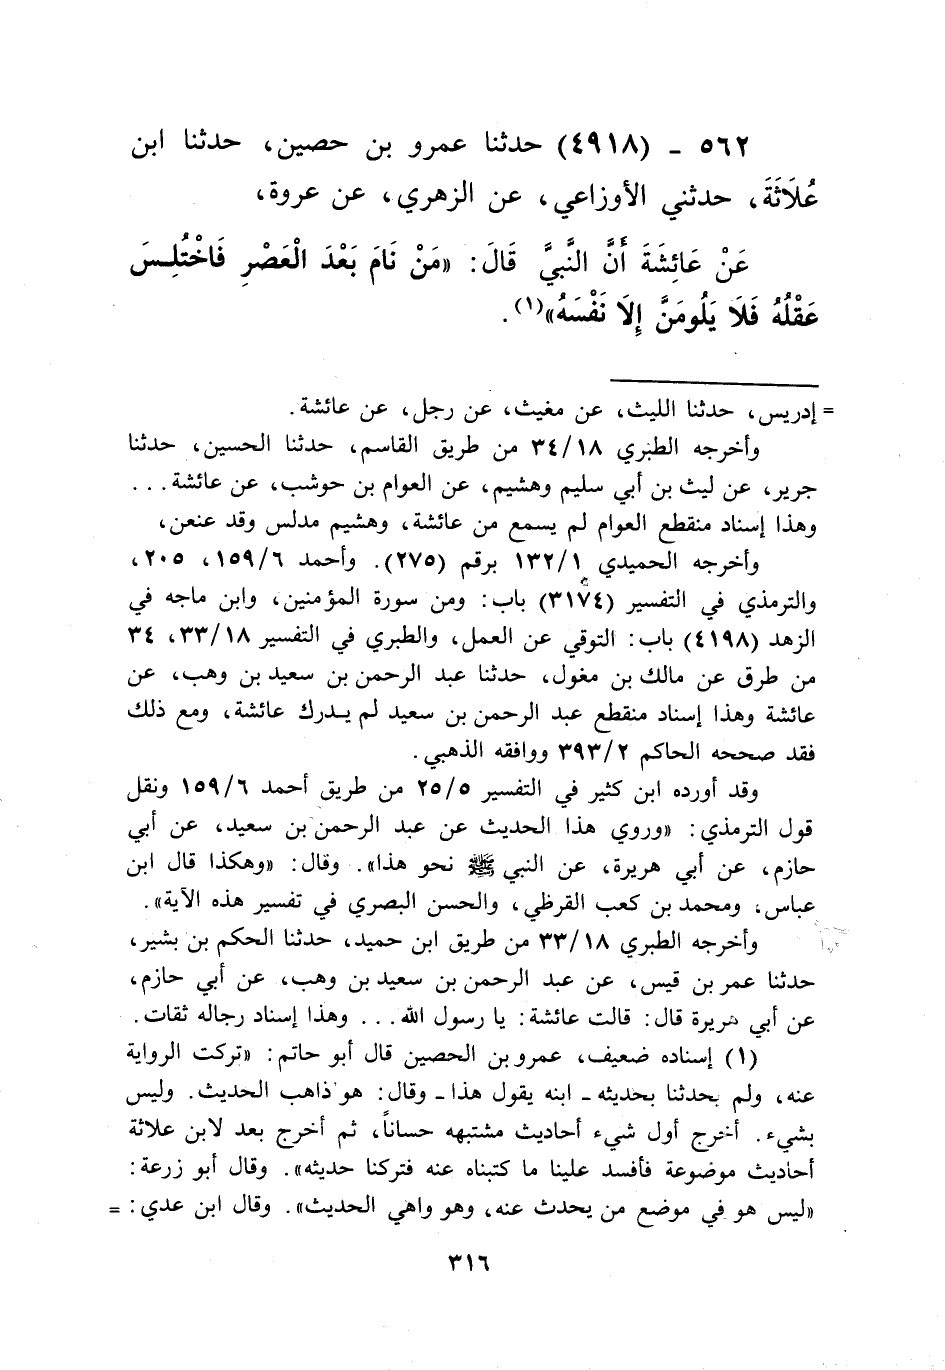 ٥٦٢ ـ (٤٩١٨) حدثنا عمرو بن حصين، حدثنا ابن
عُلَاثَةَ، حدثني الأوزاعي، عن الزهري، عن عروة،
عَنْ عَائِشَةَ أَنَّ النَّبيَّ قَالَ: «مَنْ نَامَ بَعْدَ الْعَصْرِ فَاخْتُلِسَ
عَقْلُهُ فَلَا يَلُومَنَّ إِلَّا نَفْسَهُ»(١).
= إدريس، حدثنا الليث، عن مغيث، عن رجل، عن عائشة.
وأخرجه الطبري ٣٤/١٨ من طريق القاسم، حدثنا الحسين، حدثنا
جرير، عن ليث بن أبي سليم وهشيم، عن العوام بن حوشب، عن عائشة...
وهذا إسناد منقطع العوام لم يسمع من عائشة، وهشيم مدلس وقد عنعن،
وأخرجه الحميدي ١٣٢/١ برقم (٢٧٥). وأحمد ١٥٩/٦، ٢٠٥،
والترمذي في التفسير (٣١٧٤) باب: ومن سورة المؤمنين، وابن ماجه في
الزهد (٤١٩٨) باب: التوقي عن العمل، والطبري في التفسير ٣٣/١٨، ٣٤
من طرق عن مالك بن مغول، حدثنا عبد الرحمن بن سعيد بن وهب، عن
عائشة وهذا إسناد منقطع عبد الرحمن بن سعيد لم يدرك عائشة، ومع ذلك
فقد صححه الحاكم ٣٩٣/٢ ووافقه الذهبي.
وقد أورده ابن كثير في التفسير ٢٥/٥ من طريق أحمد ١٥٩/٦ ونقل
قول الترمذي: «وروي هذا الحديث عن عبد الرحمن بن سعيد، عن أبي
حازم، عن أبي هريرة، عن النبي ﷺ نحو هذا». وقال: «وهكذا قال ابن
عباس، ومحمد بن كعب القرظي، والحسن البصري في تفسير هذه الآية».
وأخرجه الطبري ٣٣/١٨ من طريق ابن حميد، حدثنا الحكم بن بشير،
حدثنا عمر بن قيس، عن عبد الرحمن بن سعيد بن وهب، عن أبي حازم،
عن أبي هريرة قال: قالت عائشة: يا رسول الله... وهذا إسناد رجاله ثقات.
(١) إسناده ضعيف، عمرو بن الحصين قال أبو حاتم: «تركت الرواية
عنه، ولم يحدثنا بحديثه ـ ابنه يقول هذا ـ وقال: هو ذاهب الحديث. وليس
بشيء. أخرج أول شيء أحاديث مشتبهه حساناً، ثم أخرج بعد لابن علاثة
أحاديث موضوعة فأفسد علينا ما كتبناه عنه فتركنا حديثه». وقال أبو زرعة:
«ليس هو في موضع من يحدث عنه، وهو واهي الحديث». وقال ابن عدي: =
٣١٦